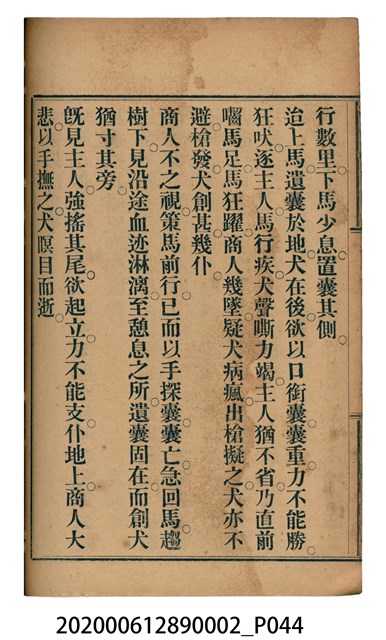 行數里。下馬少息。置囊其側。
迨上馬遺囊於地。犬在後。欲以口銜囊。囊重力不能勝。
狂吠逐主人。馬行疾。犬聲嘶力竭。主人猶不省。乃直前
囓馬足。馬狂躍。商人幾墜。疑犬病瘋。出槍擬之。犬亦不
避。槍發犬創甚。幾仆
商人不之視。策馬前行。已而以手探囊。囊亡。急回馬趨
樹下。見沿途血迹淋漓。至憩息之所。遺囊固在。而創犬
猶守其旁
旣見主人。強搖其尾。欲起立。力不能支。仆地上。商人大
悲。以手撫之。犬瞑目而逝。
202000612890002_P044